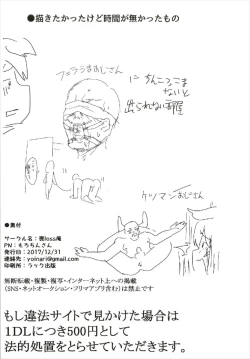 ●描きたかったけど時間が無かったもの
フェラうまおじさん
に ちんこ
ないと
出られない部屋
ケツマンおじさん
●奥付
サークル名：裏loss庵
PN：もろちんさん
発行日：2017/12/31
連絡先：yoinari@gmail.com
印刷所：ラック出版
無断転載・複製・複写・インターネット上への掲載
（SNS・ネットオークション・フリマアプリ含む）は禁止です
もし違法サイトで見かけた場合は
1DLにつき500円として
法的処置をとらせていただきます。